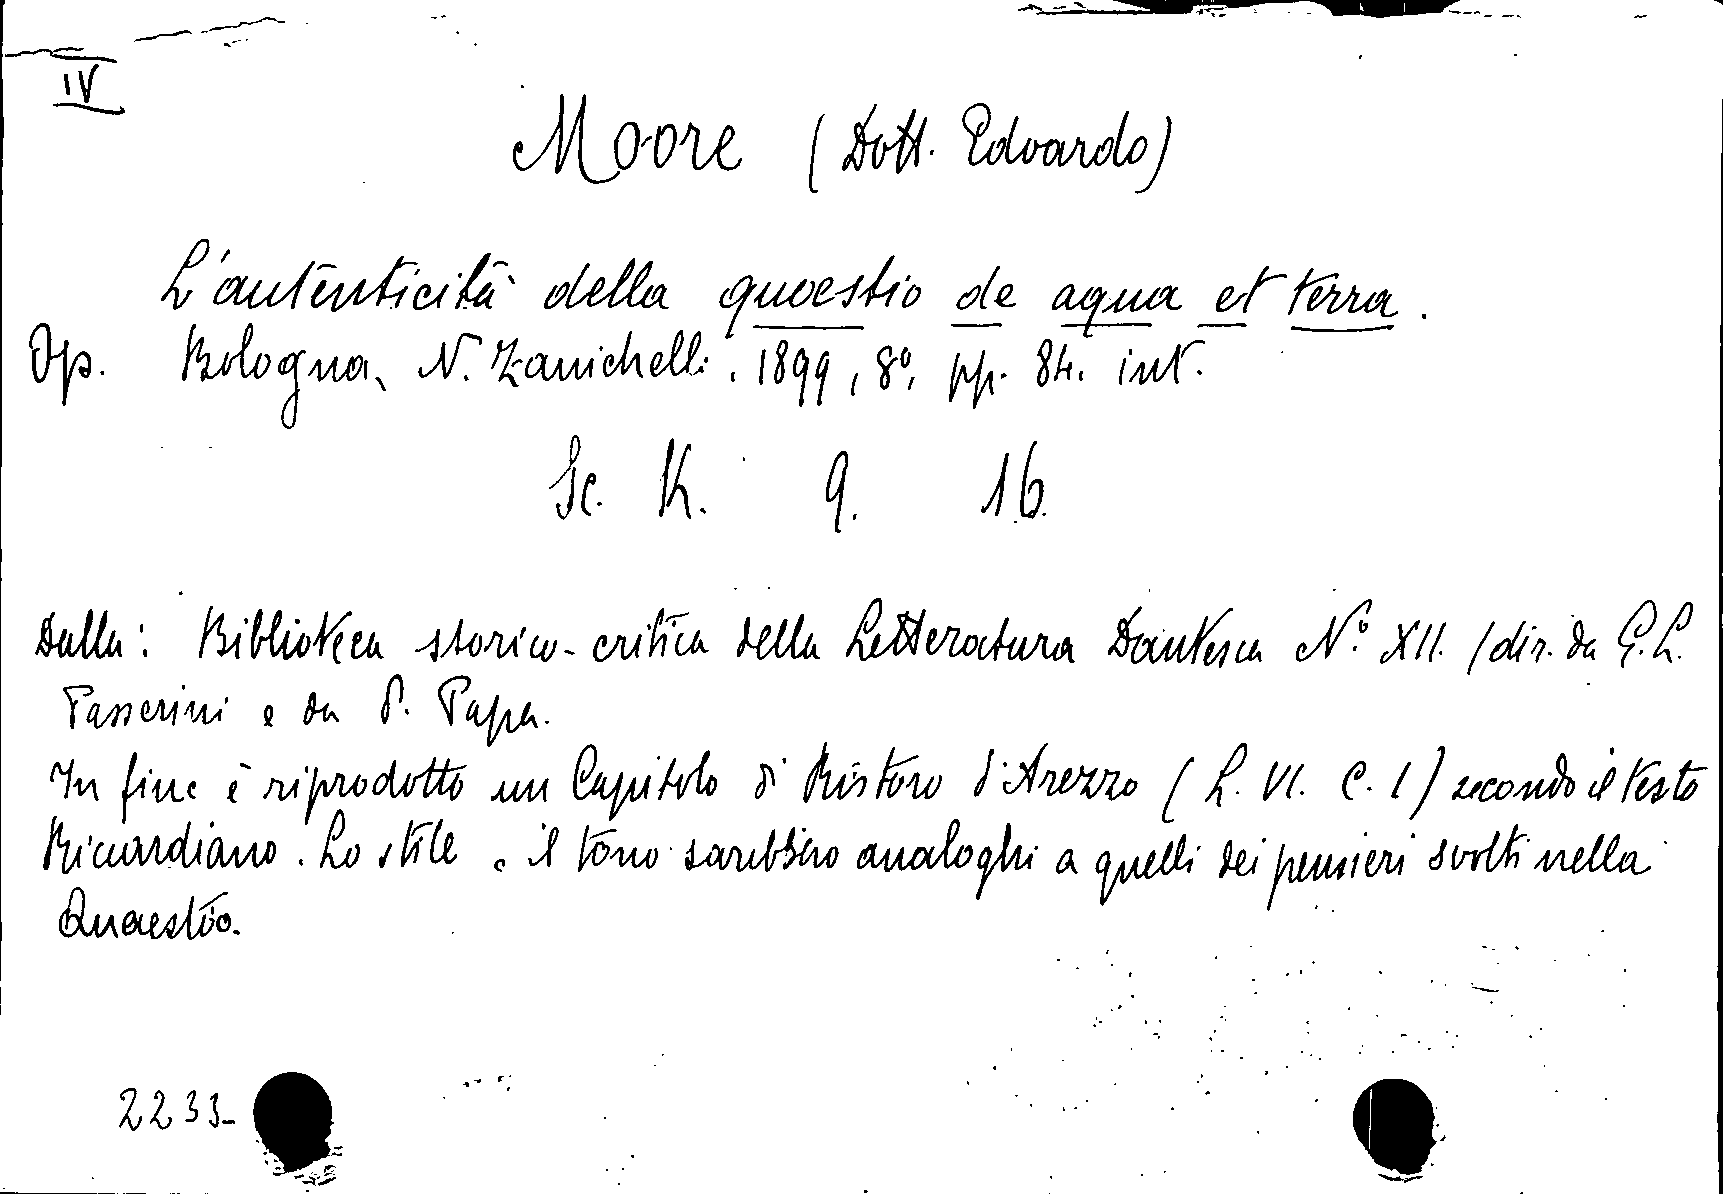 IV
Moore (Dott. Edoardo)
L'autenticità della quaestio de aqua et terra.
Op. Bologna, N. Zanichelli. 1899, 8°, pp. 84. int.
Sc. K. 9. 16.
Dalla: Biblioteca storico-critica della Letteratura Dantesca N.° XII. (dir. da G. L.
Passerini e da P. Papa.
In fine è riprodotto un Capitolo di Ristoro d'Arezzo (L. VI. C. I) secondo il testo
Riccardiano. Lo stile e il tono sarebbero analoghi a quelli dei pensieri svolti nella
Quaestio.
2233-